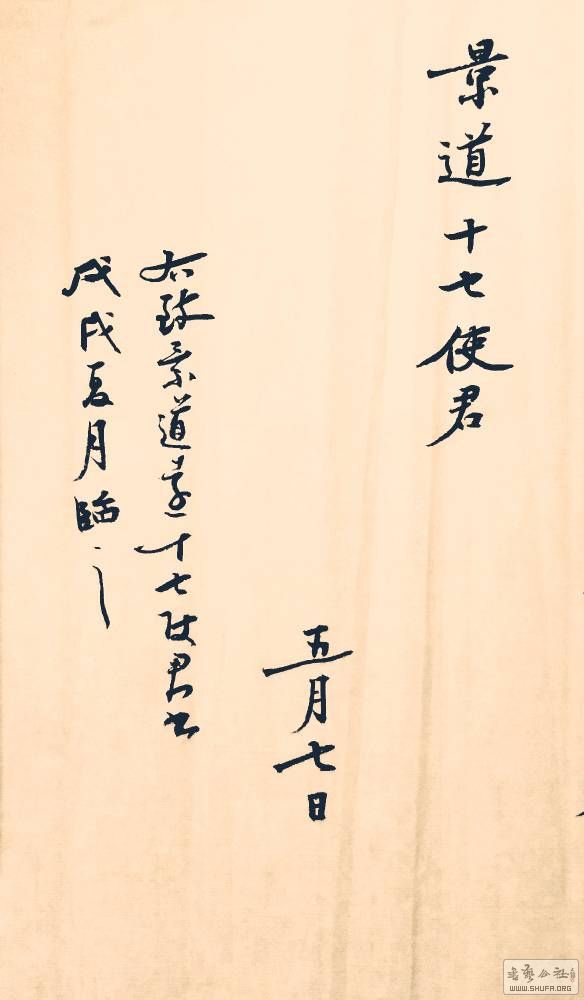 景道十七使君
五月七日
右致景道十七使君書
戊戌夏月臨之
書藝公社
WWW.SHUFA.ORG